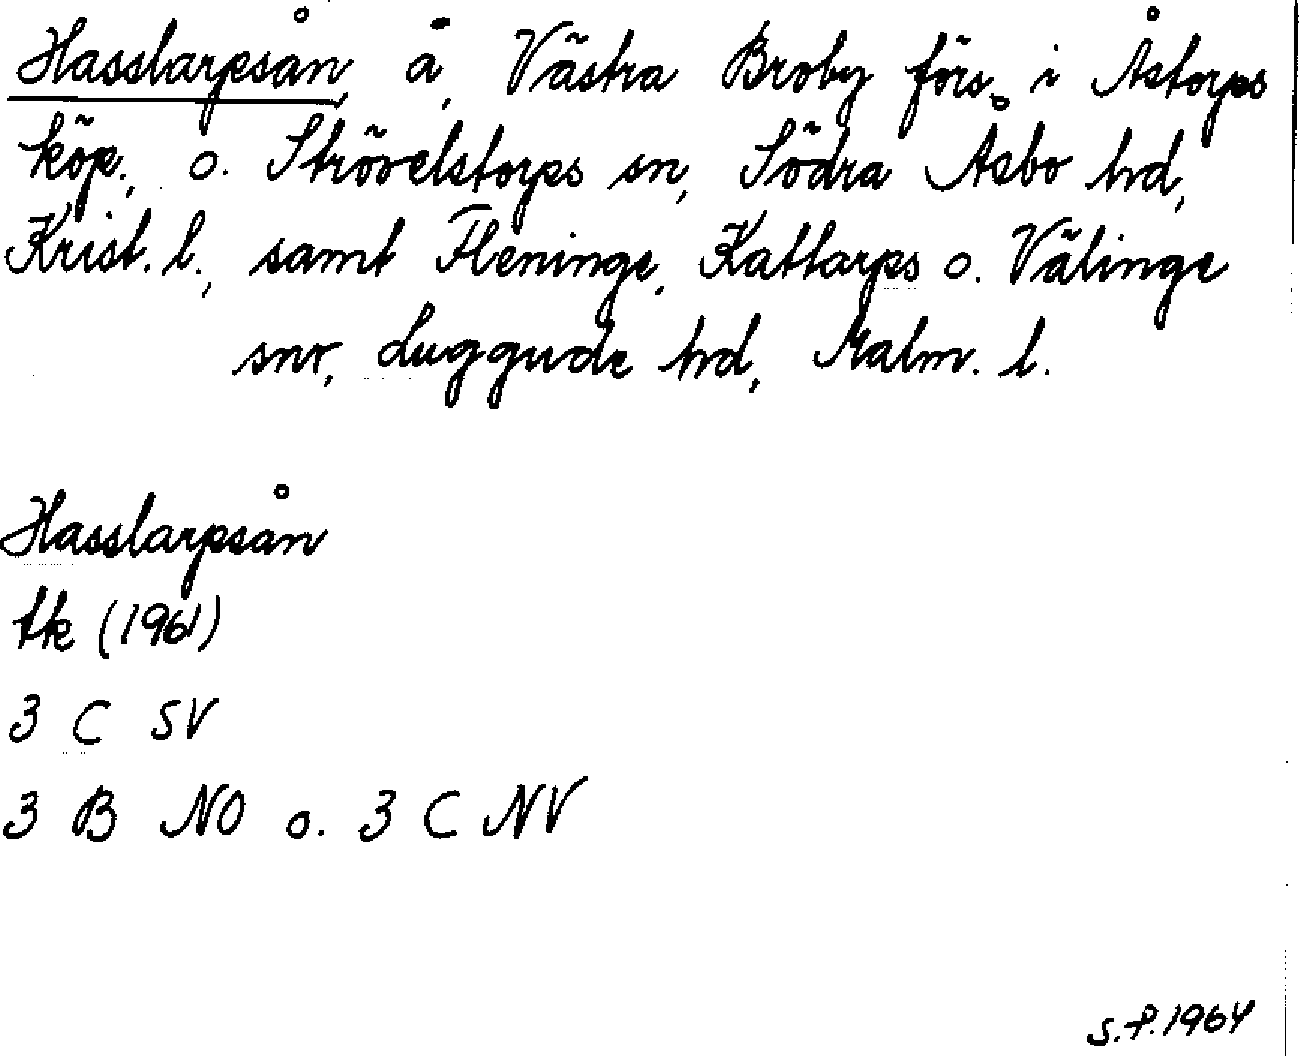 Hasslarpsån, å, Västra Broby förs. i Åstorps
köp., o. Strövelstorps sn, Södra Åsbo hd,
Krist. l., samt Fleninge, Kattarps o. Välinge
snr, Luggude hd, Malm. l.
Hasslarpsån
tk (1961)
3 C SV
3 B NO o. 3 C NV
S.F. 1964